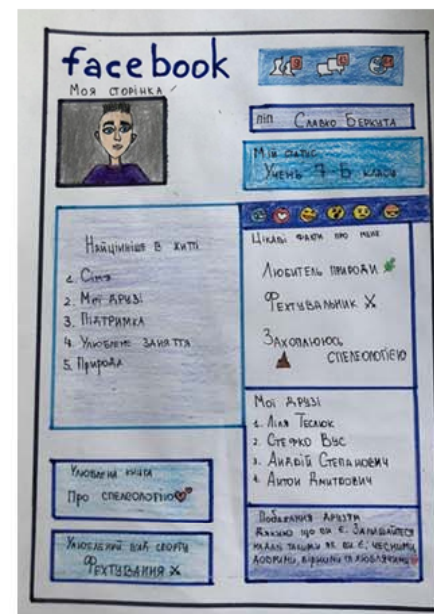 facebook
Моя сторінка
ПІП Славко Беркита
Мій статус
Учень 7-Б класу
Найцінніше в житті
1. Сім'я
2. Мої друзі
3. Підтримка
4. Улюблене заняття
5. Природа
Цікаві факти про мене
Любитель природи
Фехтувальник
Захоплююсь
спелеологією
Мої друзі
1. Ліля Теслюк
2. Стефко Вус
3. Андрій Степанович
4. Антон Дмитрович
Улюблена книга
Про спелеологію
Улюблений вид спорту
Фехтування
Побажання друзям
Дякую що ви є. Залишайтеся
надалі такими як ви є; чесними,
добрими, вірними та люблячими